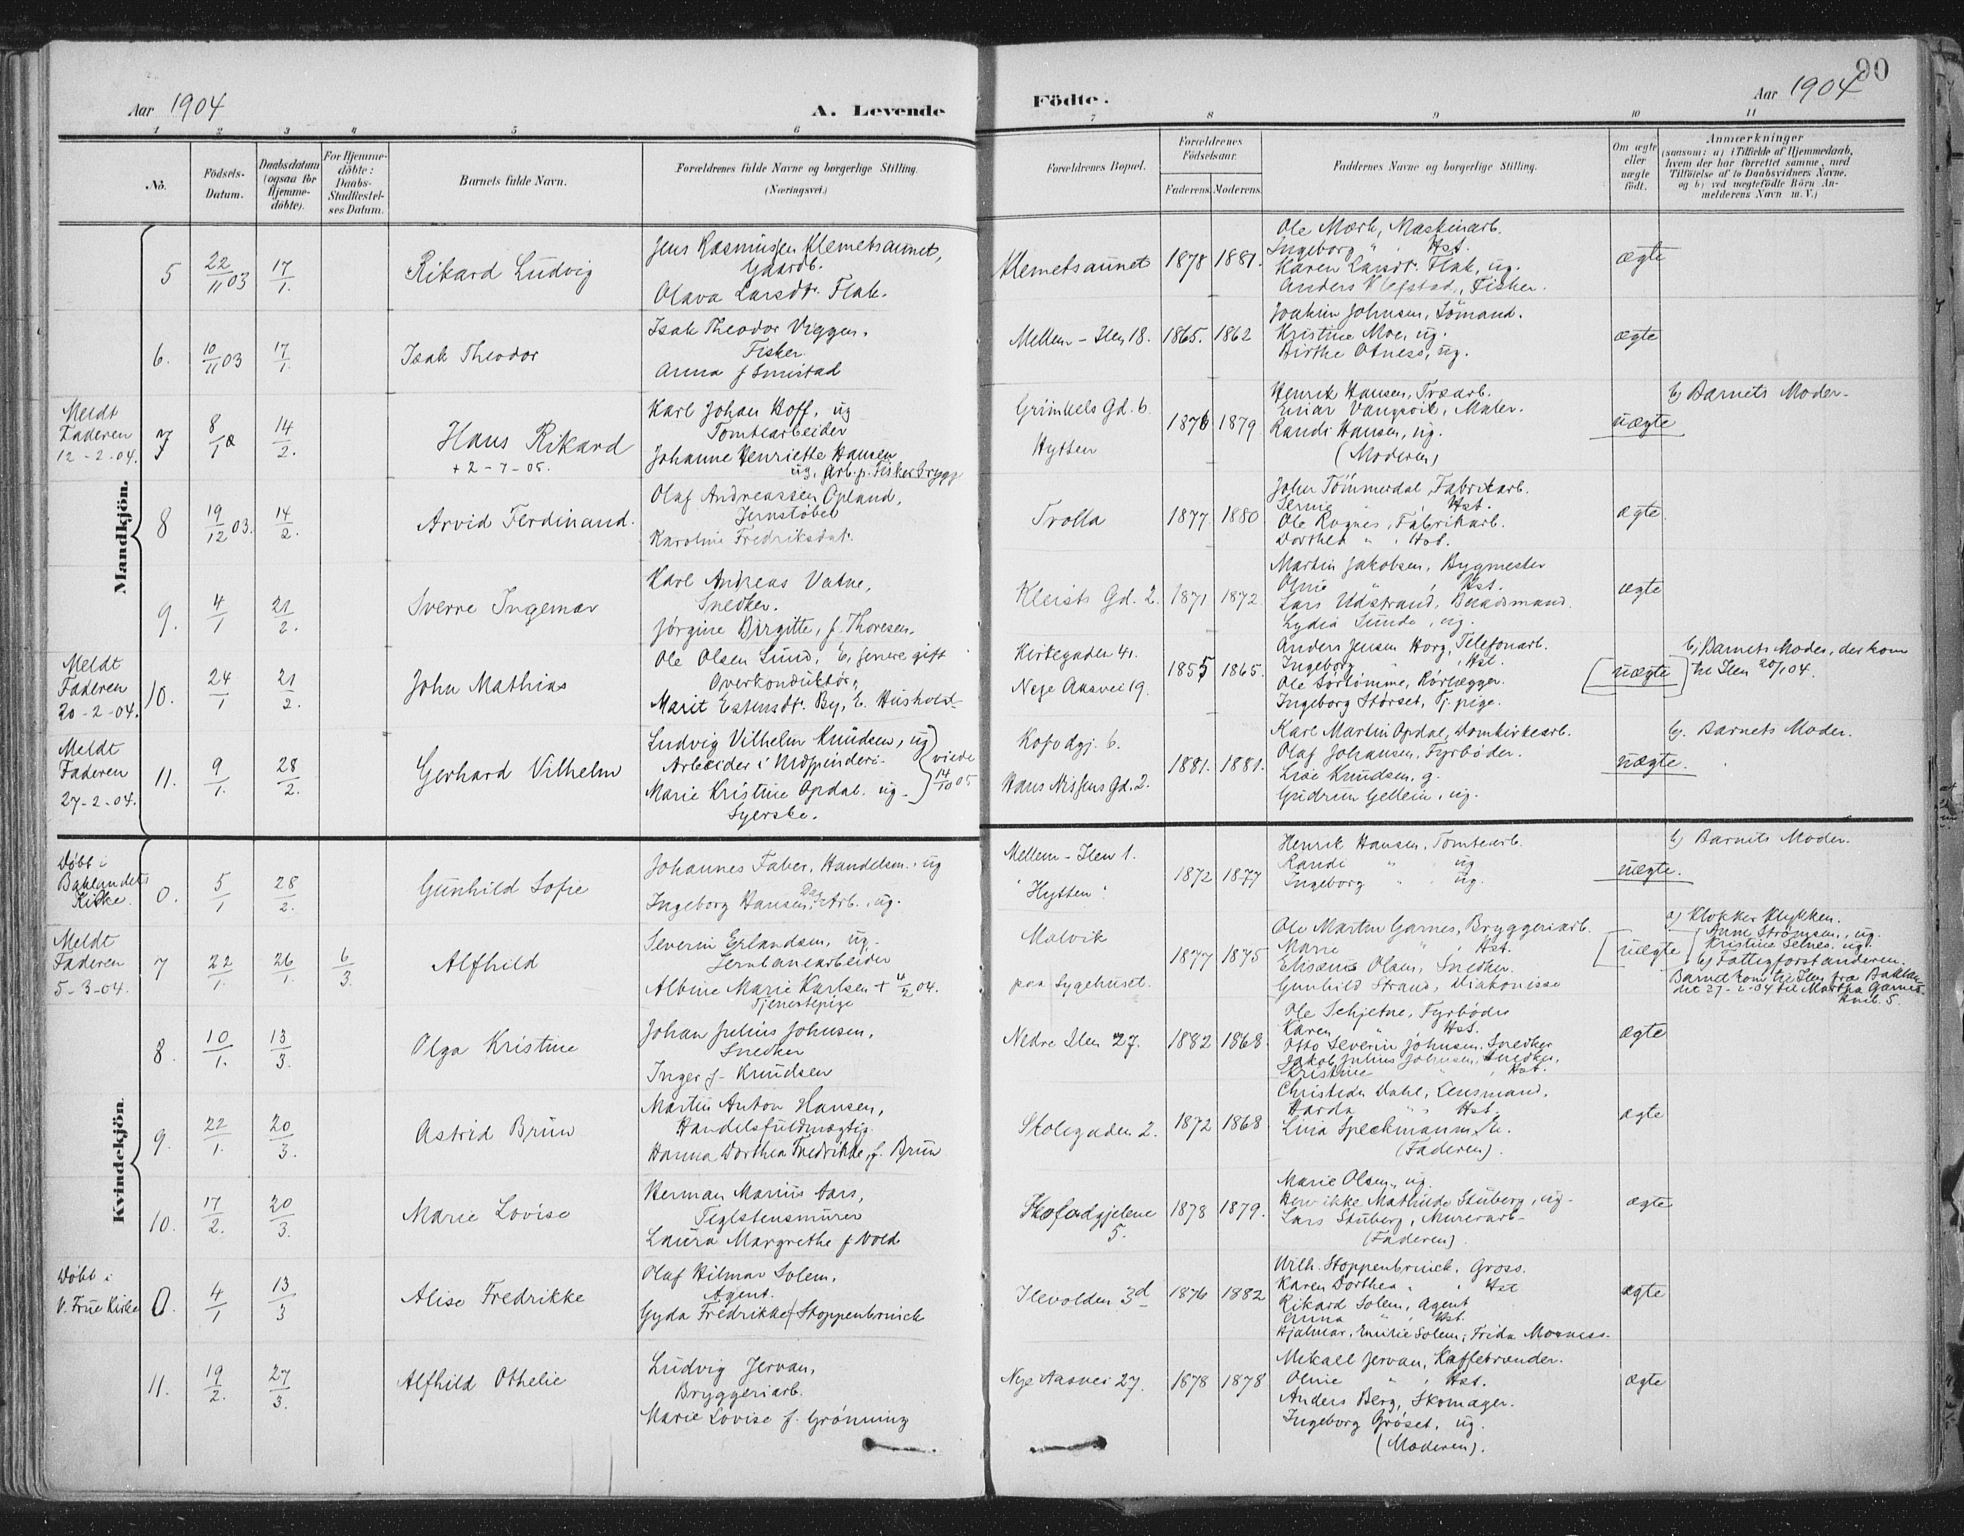 90
Aar 1904
A. Levende
Födte.
Aar 1904
1 2 3 4 5 6 7 8 9 10 11
No.
Födsels-
Datum.
Daabsdatum
(ogsaa for
Hjemme-
döbte).
For Hjemme-
döbte:
Daabs-
Stadfæstel-
ses Datum.
Barnets fulde Navn.
Forældrenes fulde Navne og borgerlige Stilling.
(Næringsvei.)
Forældrenes Bopæl.
Forældrenes
Födselsaar.
Faderens. Moderens.
Faddernes Navne og borgerlige Stilling.
Om ægte
eller
uægte
födt.
Anmærkninger
(saasom: a) i Tilfælde af Hjemmedaab,
hvem der har forrettet samme, med
Tilföielse af to Daabsvidners Navne,
og b) ved uægtefödte Börn An-
melderens Navn m. V.)
Mandkjön.
5 22/11 03 17/1. Rikard Ludvig
Jens Rasmussen Klemetsaunet,
Gaardb.
Olava Larsdt. Flak.
Klemetsaunet 1878 1881.
Ole Mærk, Maskinarb.
Ingeborg " , Hst.
Karen Larsdt. Flak, ug.
Anders Klefstad, Fisker.
ægte
6. 10/11 03 17/1. Isak Theodor
Isak Theodor Viggen,
Fisker
Anna f Smistad
Mellem-Ilen 18. 1865. 1862
Joakim Johnsen, Sömand.
Kristine Moe, ug.
Birthe Otness, ug.
ægte
Meldt
Faderen
12-2-04.
7 8/1 14/2. Hans Rikard
+ 2-7-05.
Karl Johan Hoff, ug
Tomtearbeider
Johanne Henriette Hansen
ug, Arb. p. Fiskebrygg
Grünkels Gd. 6
Hytten
1876 1879
Henrik Hansen, Træarb.
Einar Vangsvik, Maler.
Randi Hansen, ug.
(Moderen)
uægte
b) Barnets Moder.
8 19/12 03. 14/2. Arvid Ferdinand.
Olaf Andreassen Opland,
Jernstøber
Karoline Fredriksdt.
Trolla 1877 1880
John Tömmerdal, Fabrikarb.
" Hst.
Ole Rognes, Fabrikarb.
Dorthea " , Hst.
ægte
9. 4/1 21/2. Sverre Ingemar
Karl Andreas Vatne,
Snedker.
Jørgine Birgitte, f. Thoresen.
Kleists Gd. 2. 1871 1872.
Martin Jakobsen, Bygmester
Oline " , Hst.
Lars Udstrand, Baadsmand.
Lydia Sunde, ug.
ægte
Meldt
Faderen
20-2-04.
10. 24/1 21/2. John Mathias
Ole Olsen Lund, E, senere gift
Overkonduktör,
Marit Estensdt. By, E. Hushold.
Kirkegaden 41.
Nye Aasvei 19.
1855 1865.
Anders Jensen Horg, Telefonarb.
Ingeborg " , Hst.
Ole Sörtömme, Rörlægger.
Ingeborg Størset, Tj. pige.
uægte
b) Barnets Moder, der kom
til Ilen 20/1 04.
Meldt
Faderen
27-2-04.
11. 9/1. 28/2. Gerhard Vilhelm
Ludvig Vilhelm Knudsen, ug
Arbeider i Uldspinderi.
Marie Kristine Opdal. ug.
Syerske.
viede
14/10 05
Kofodgj. 6.
Hans Nissens Gd. 2.
1881. 1881.
Karl Martin Opdal, Domkirkearb.
Olaf Johansen, Fyrbøder.
Knudsen, g.
Gudrun Gellein, ug.
uægte.
b. Barnets Moder.
Kvindekjön.
Döbt i
Baklandets
Kirke.
0. 5/1 28/2. Gunhild Sofie
Johannes Faber, Handelsm., ug
Ingeborg Hansen, Dag Arb., ug.
Mellem-Ilen 1.
"Hytten".
1872 1877
Henrik Hansen, Tomtearb.
Randi " ug
Ingeborg " ug.
uægte.
b) Barnets Moder.
Meldt
Faderen
5-3-04.
7 22/1. 26/1. 6/3 Alfhild
Severin Erlandsen, ug.
Jernbanearbeider
Albine Marie Karlsen + 4/2 04.
Tjenestepige
Malvik
paa Sygehuset.
1877 1875
Ole Martin Garnes, Bryggeriarb.
Marie " , Hst.
Elisæus Olsen, Snedker.
Gunhild Strand, Diakonisse
uægte
a) Klokker Klykken.
Anne Strømsen, ug.
Kristine Selnes, ug.
b) Fattigforstanderen.
Barnet kom til Ilen fra Baklan-
det 27-2-04 til Martha Garnes
8. 10/1. 13/3. Olga Kristine
Johan Julius Johnsen,
Snedker
Inger f. Knudsen
Nedre Ilen 27. 1882 1868
Ole Schjetne, Fyrbøder
Karen " , Hst.
Otto Severin Johnsen, Snedker
Jakob Julius Johnsen, Snedker,
Kristine " , Hst.
ægte
9. 22/1. 20/3. Astrid Brün
Martin Anton Hansen,
Handelsfuldmægtig.
Hanna Dorthea Fredrikke, f. Brün
Skolegaden 2. 1872 1868
Christian Dahl, Lensmand.
Harda " Hst.
Lina Speckmann,
(Faderen).
ægte
10. 17/2. 20/3. Marie Lovise
Herman Marius Aars,
Teglstensmurer
Laura Margrethe f Vold
Kofodgjelene
5.
1878 1879.
Marie Olsen, ug.
Henrikke Mathilde Stuberg, ug.
Lars Stuberg, Murerarb.
(Faderen).
ægte
Döbt i
V. Frue Kirke
0. 4/1 13/3 Alise Fredrikke
Olaf Hilmar Solem,
Agent.
Gyda Fredrikke f Stoppenbrinck
Ilevolden 3d 1876 1882
Wilh. Stoppenbrinck, Gross.
Karen Dorthea " , Hst
Rikard Solem, Agent
Anna " , Hst.
Hjalmar, Emilie Solem, Frida Mosness.
ægte
11. 19/2. 27/3. Alfhild Othelie
Ludvig Jervan,
Bryggeriarb.
Marie Lovise f. Grønning
Nye Aasvei 27. 1878 1878
Mikall Jervan, Kaffebrænder.
Oline " , Hst.
Anders Berg, Skomager.
Ingeborg Gröset, ug.
(Moderen).
ægte